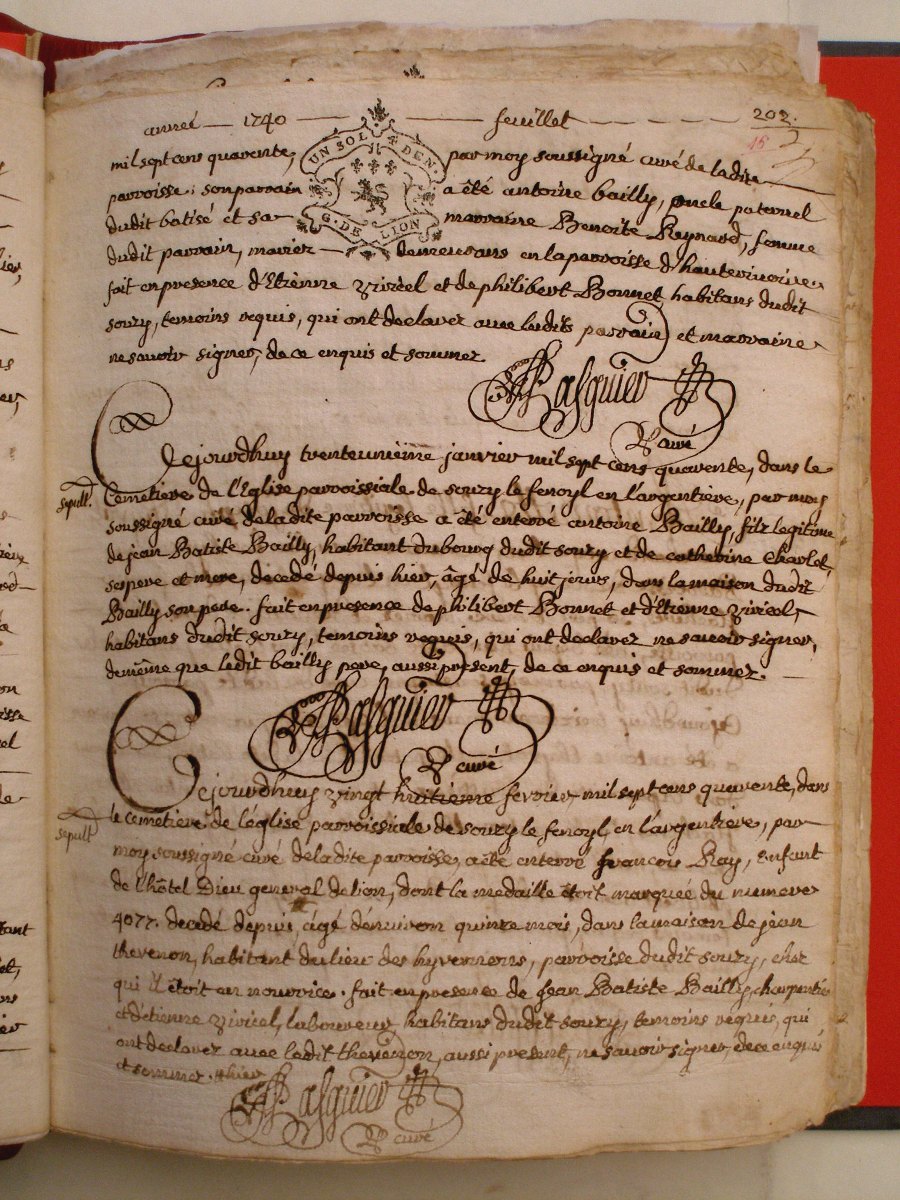 année — 1740 — feuillet — 202.
15
UN SOL 4 DEN.
G. DE LION
mil sept cens quarente, par moy soussigné curé de ladite
parroisse; son parrain a été antoine bailly, oncle paternel
dudit batisé et sa marraine Benoîte Reynard, femme
dudit parrain, mariez demeurans en la parroisse d'hauterivoire,
fait en presence d'Etienne et de philibert Bonnet habitans dudit
souzy, temoins requis, qui ont declarez avec lesdits parrain et marraine
ne savoir signer, de ce enquis et sommez.
Pasquier
curé
Cejourdhuy trenteunième janvier mil sept cens quarente, dans le
sepult.
Cemetiere de l'Eglise parroissiale de souzy le fenoyl en l'argentière, par moy
soussigné curé de ladite parroisse a été enterré antoine Bailly, fils legitime
de jean Batiste Bailly, habitant du bourg dudit souzy et de catherine Charlot,
ses pere et mere, decedé depuis hier, âgé de huit jours, dans la maison dudit
Bailly son pere. fait en presence de philibert Bonnet et d'Etienne
habitans dudit souzy, temoins requis, qui ont declarez ne savoir signer,
de même que ledit bailly pere, aussi present, de ce enquis et sommez.
Pasquier
curé
Cejourdhuy vingt huitième fevrier mil sept cens quarente, dans
sepult.
le cemetiere de l'église parroissiale de souzy le fenoyl en l'argentière, par
moy soussigné curé de ladite parroisse, a été enterré francois Ray, Enfant
de l'hôtel Dieu general de lion, dont la medaille étoit marquée du numero
4077. decedé depuis âgé d'environ quinze mois, dans la maison de jean
thevenon, habitant du lieu des hyvernons, parroisse dudit souzy, chez
qui il étoit en nourrice. fait en presence de jean Batiste Bailly, charpentier
et d'étienne laboureur, habitans dudit souzy, temoins réquis, qui
ont declarez avec ledit thevenon, aussi present, ne savoir signer, de ce enquis
et sommez. hier
Pasquier
curé